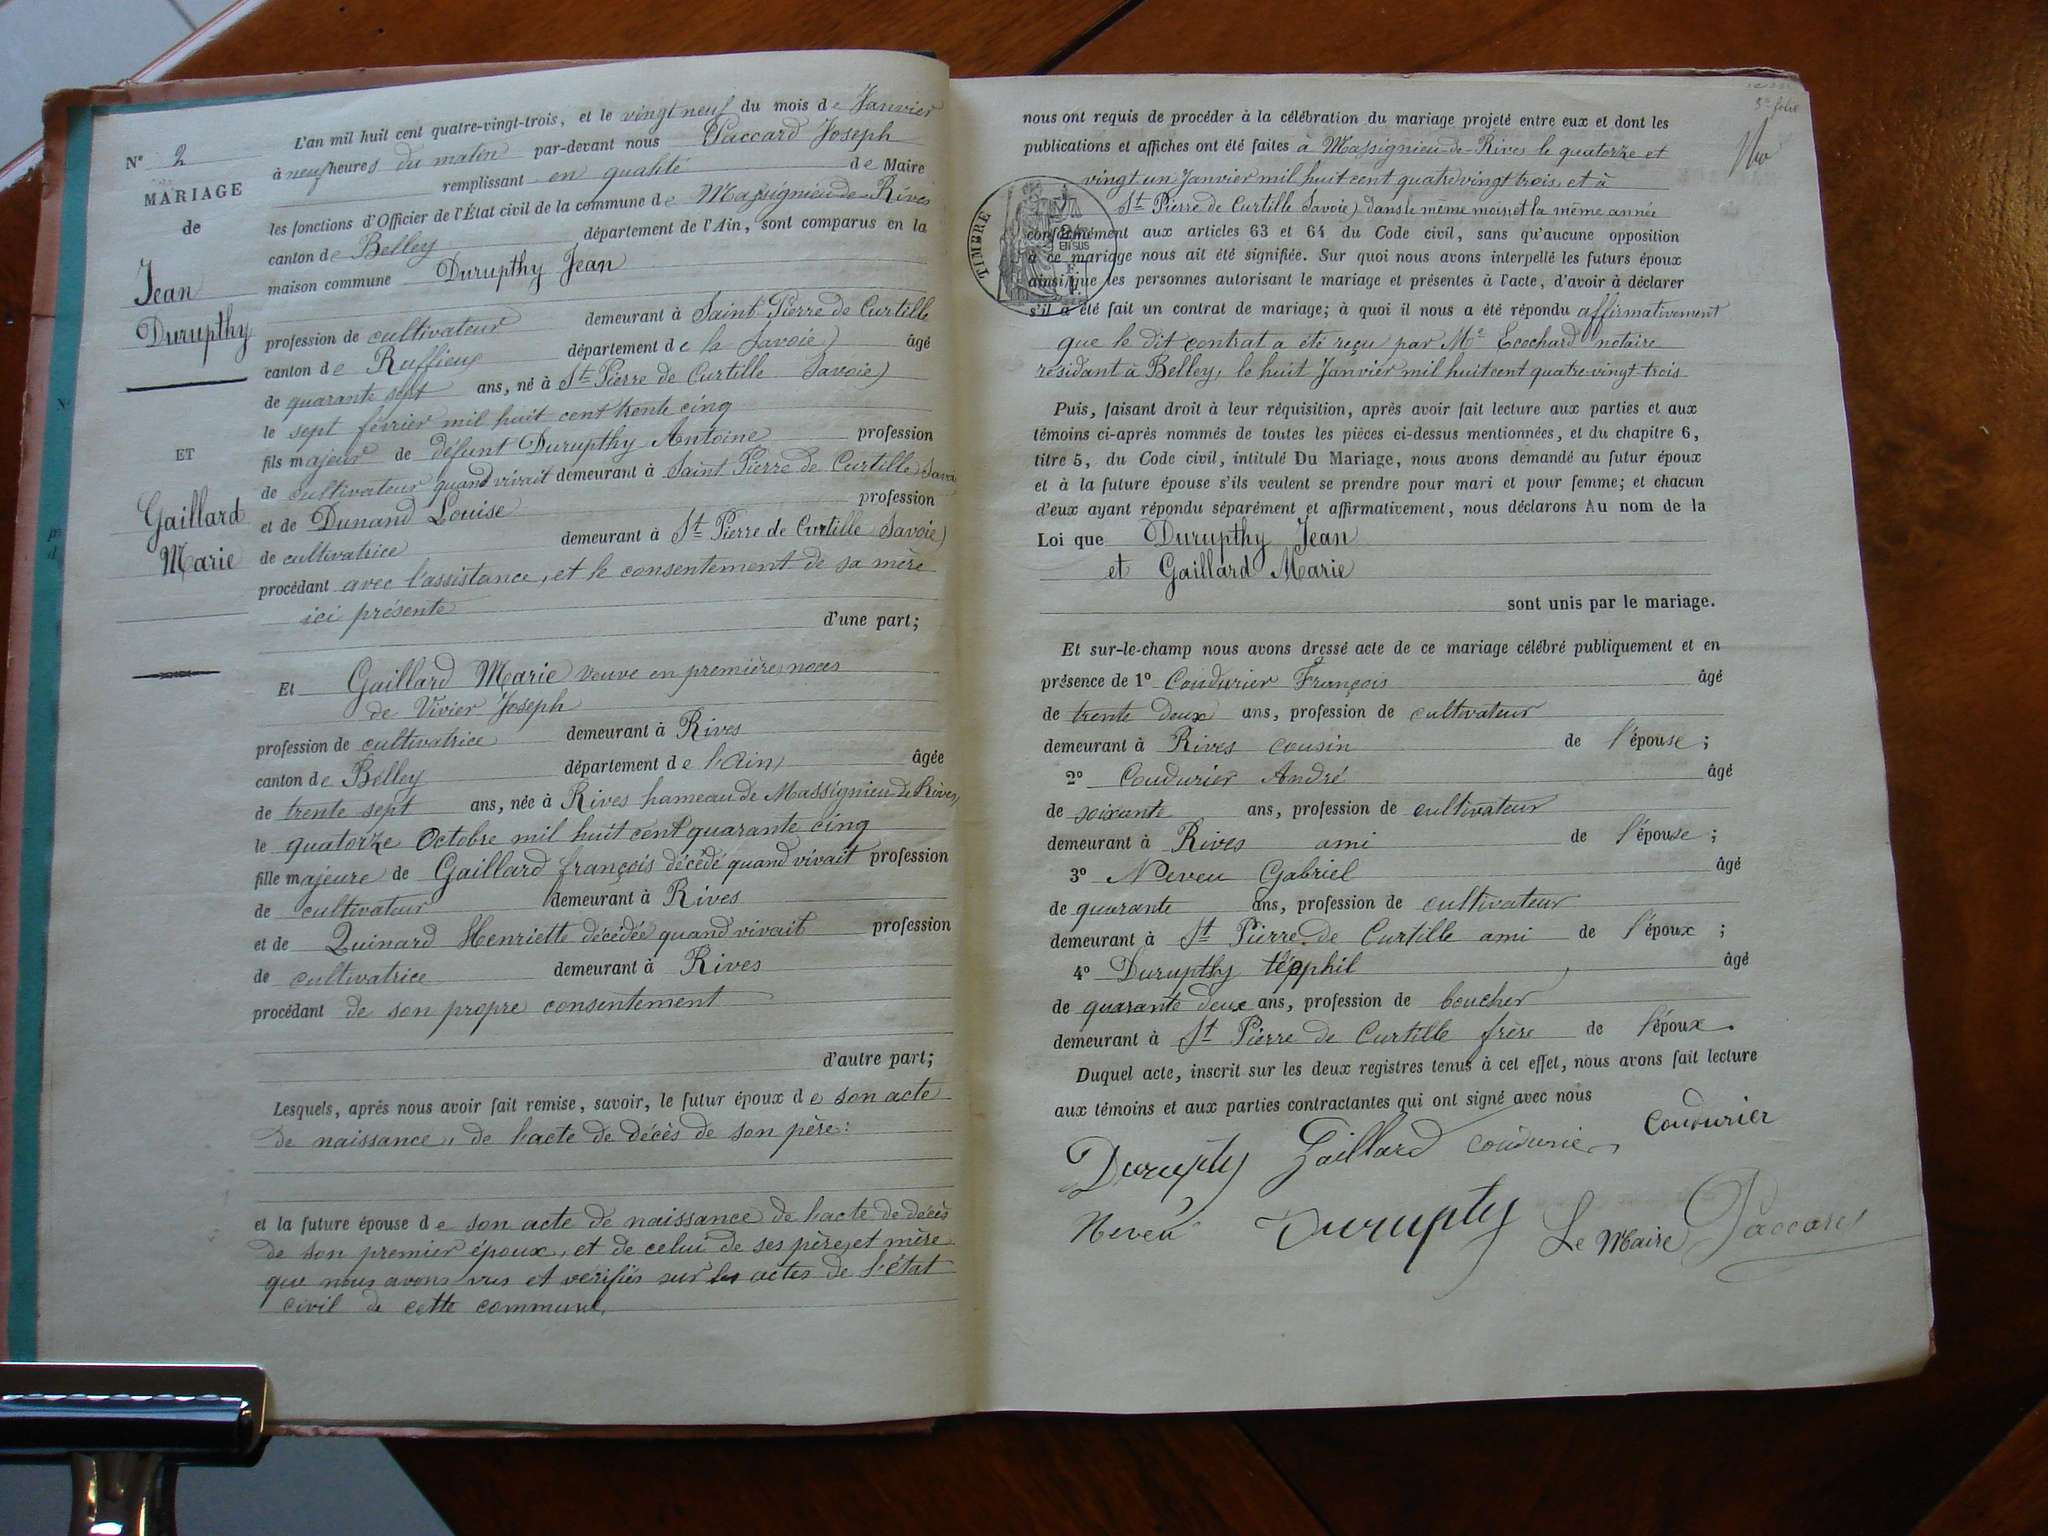 N° 2
MARIAGE
de
Jean
Durupthy
ET
Gaillard
Marie
L'an mil huit cent quatre-vingt-trois, et le vingt neuf du mois de Janvier
à neuf heures du matin par-devant nous Paccard Joseph
remplissant en qualité de Maire
les fonctions d'Officier de l'État civil de la commune de Massignieu-de-Rives
canton de Belley département de l'Ain, sont comparus en la
maison commune Durupthy Jean
profession de cultivateur demeurant à Saint Pierre de Curtille
canton de Ruffieux département de la Savoie) âgé
de quarante sept ans, né à St Pierre de Curtille Savoie)
le sept février mil huit cent trente cinq
fils majeur de défunt Durupthy Antoine profession
de cultivateur quand vivait demeurant à Saint Pierre de Curtille Savoie
et de Dunand Louise profession
de cultivatrice demeurant à St Pierre de Curtille Savoie)
procédant avec l'assistance, et le consentement de sa mère
ici présente
d'une part;
Et Gaillard Marie veuve en premières noces
de Vivier Joseph
profession de cultivatrice demeurant à Rives
canton de Belley département de l'Ain, âgée
de trente sept ans, née à Rives hameau de Massignieu-de-Rives,
le quatorze Octobre mil huit cent quarante cinq
fille majeure de Gaillard françois décédé quand vivait profession
de cultivateur demeurant à Rives
et de Quinard Henriette décédée quand vivait profession
de cultivatrice demeurant à Rives
procédant de son propre consentement
d'autre part;
Lesquels, après nous avoir fait remise, savoir, le futur époux de son acte
de naissance, de l'acte de décès de son père:
et la future épouse de son acte de naissance de l'acte de décès
de son premier époux, et de celui de ses père, et mère
que nous avons vus et vérifiés sur les actes de l'état
civil de cette commune,
3e folio
nous ont requis de procéder à la célébration du mariage projeté entre eux et dont les
publications et affiches ont été faites à Massignieu-de-Rives le quatorze et
vingt un Janvier mil huit cent quatre vingt trois, et à
St Pierre de Curtille Savoie) dans le même mois et la même année
TIMBRE
conformément aux articles 63 et 64 du Code civil, sans qu'aucune opposition
à ce mariage nous ait été signifiée. Sur quoi nous avons interpellé les futurs époux
ainsi que les personnes autorisant le mariage et présentes à l'acte, d'avoir à déclarer
s'il a été fait un contrat de mariage; à quoi il nous a été répondu affirmativement
que le dit contrat a été reçu par Me Ecochard notaire
résidant à Belley, le huit Janvier mil huit cent quatre-vingt-trois
Puis, faisant droit à leur réquisition, après avoir fait lecture aux parties et aux
témoins ci-après nommés de toutes les pièces ci-dessus mentionnées, et du chapitre 6,
titre 5, du Code civil, intitulé Du Mariage, nous avons demandé au futur époux
et à la future épouse s'ils veulent se prendre pour mari et pour femme; et chacun
d'eux ayant répondu séparément et affirmativement, nous déclarons Au nom de la
Loi que Durupthy Jean
et Gaillard Marie
sont unis par le mariage.
Et sur-le-champ nous avons dressé acte de ce mariage célébré publiquement et en
présence de 1° Coudurier François âgé
de trente deux ans, profession de cultivateur
demeurant à Rives cousin de l'épouse;
2° Coudurier André âgé
de soixante ans, profession de cultivateur
demeurant à Rives ami de l'épouse;
3° Neveu Gabriel âgé
de quarante ans, profession de cultivateur
demeurant à St Pierre de Curtille ami de l'époux;
4° Durupthy téophil, âgé
de quarante deux ans, profession de boucher
demeurant à St Pierre de Curtille frère de l'époux.
Duquel acte, inscrit sur les deux registres tenus à cet effet, nous avons fait lecture
aux témoins et aux parties contractantes qui ont signé avec nous
Durupty Gaillard Coudurier Coudurier
Neveu Durupty Le Maire Paccard